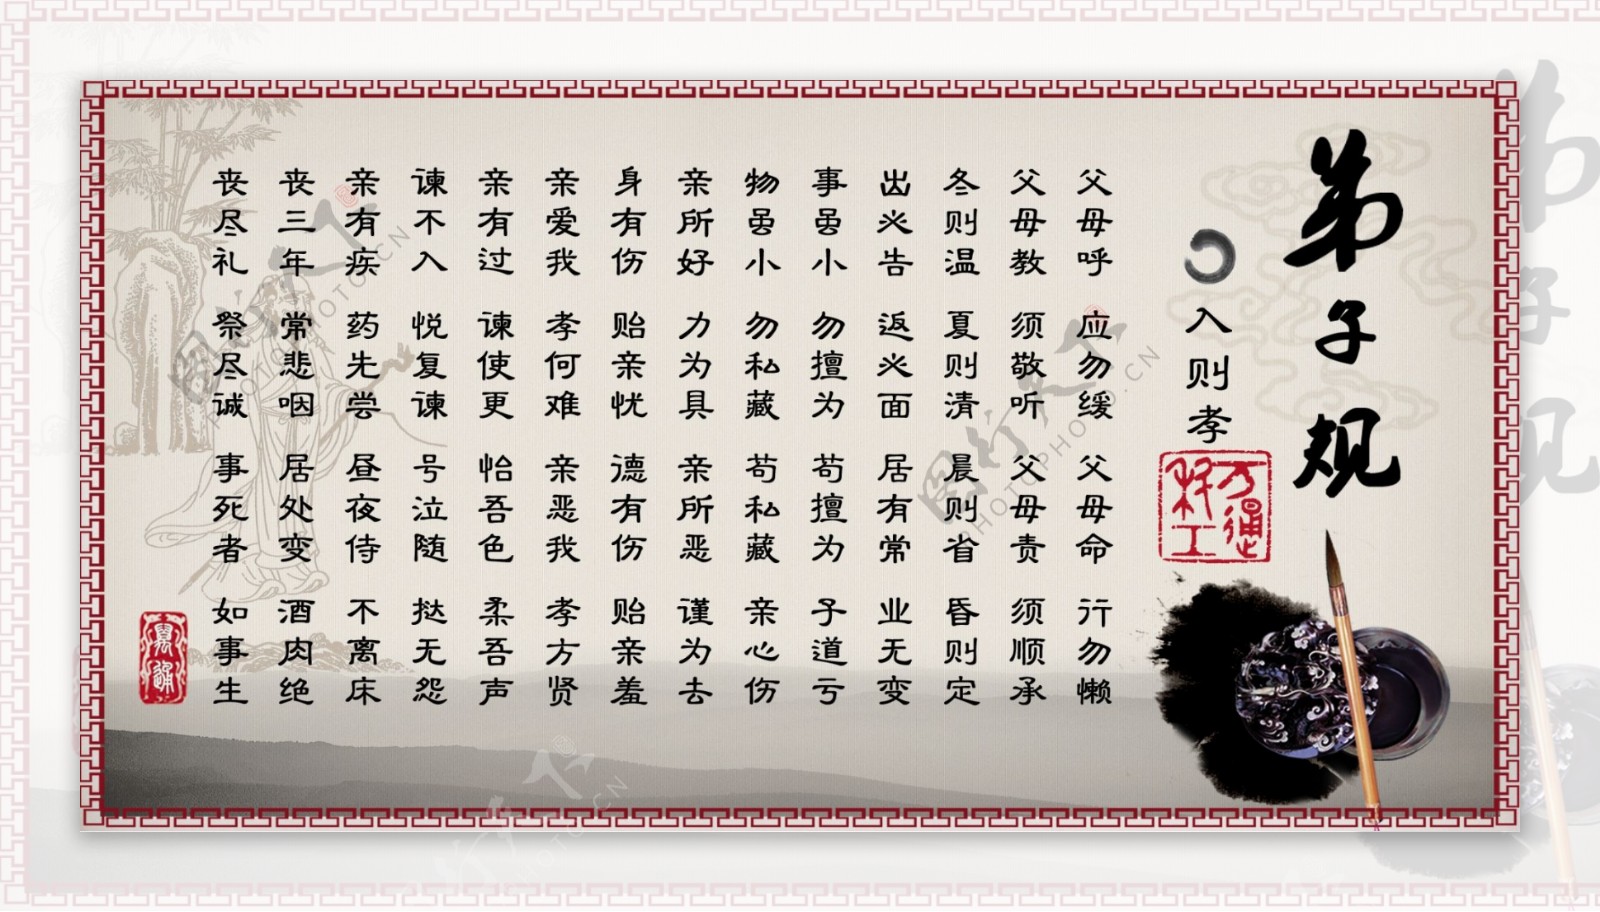 弟子规
入则孝
父母呼 应勿缓 父母命 行勿懒
父母教 须敬听 父母责 须顺承
冬则温 夏则清 晨则省 昏则定
出必告 返必面 居有常 业无变
事虽小 勿擅为 苟擅为 子道亏
物虽小 勿私藏 苟私藏 亲心伤
亲所好 力为具 亲所恶 谨为去
身有伤 贻亲忧 德有伤 贻亲羞
亲爱我 孝何难 亲恶我 孝方贤
亲有过 谏使更 怡吾色 柔吾声
谏不入 悦复谏 号泣随 挞无怨
亲有疾 药先尝 昼夜侍 不离床
丧三年 常悲咽 居处变 酒肉绝
丧尽礼 祭尽诚 事死者 如事生
图行天下 PHOTOPHOTO.CN
图行天下 PHOTOPHOTO.CN